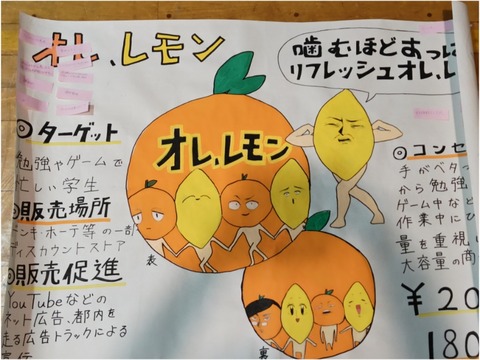 オレ、レモン
噛むほどすっぱ
リフレッシュオレ、レ
◎ターゲット
勉強やゲームで
忙しい学生
◎販売場所
ドンキ・ホーテ等の一部
ディスカウントストア
◎販売促進
YouTubeなどの
ネット広告、都内を
走る広告トラックによる
宣伝
オレ、レモン
表
裏
◎コンセ
手がベタ
から勉強
ゲーム中など
作業中にひ
量を重視し
大容量の商
¥20
180